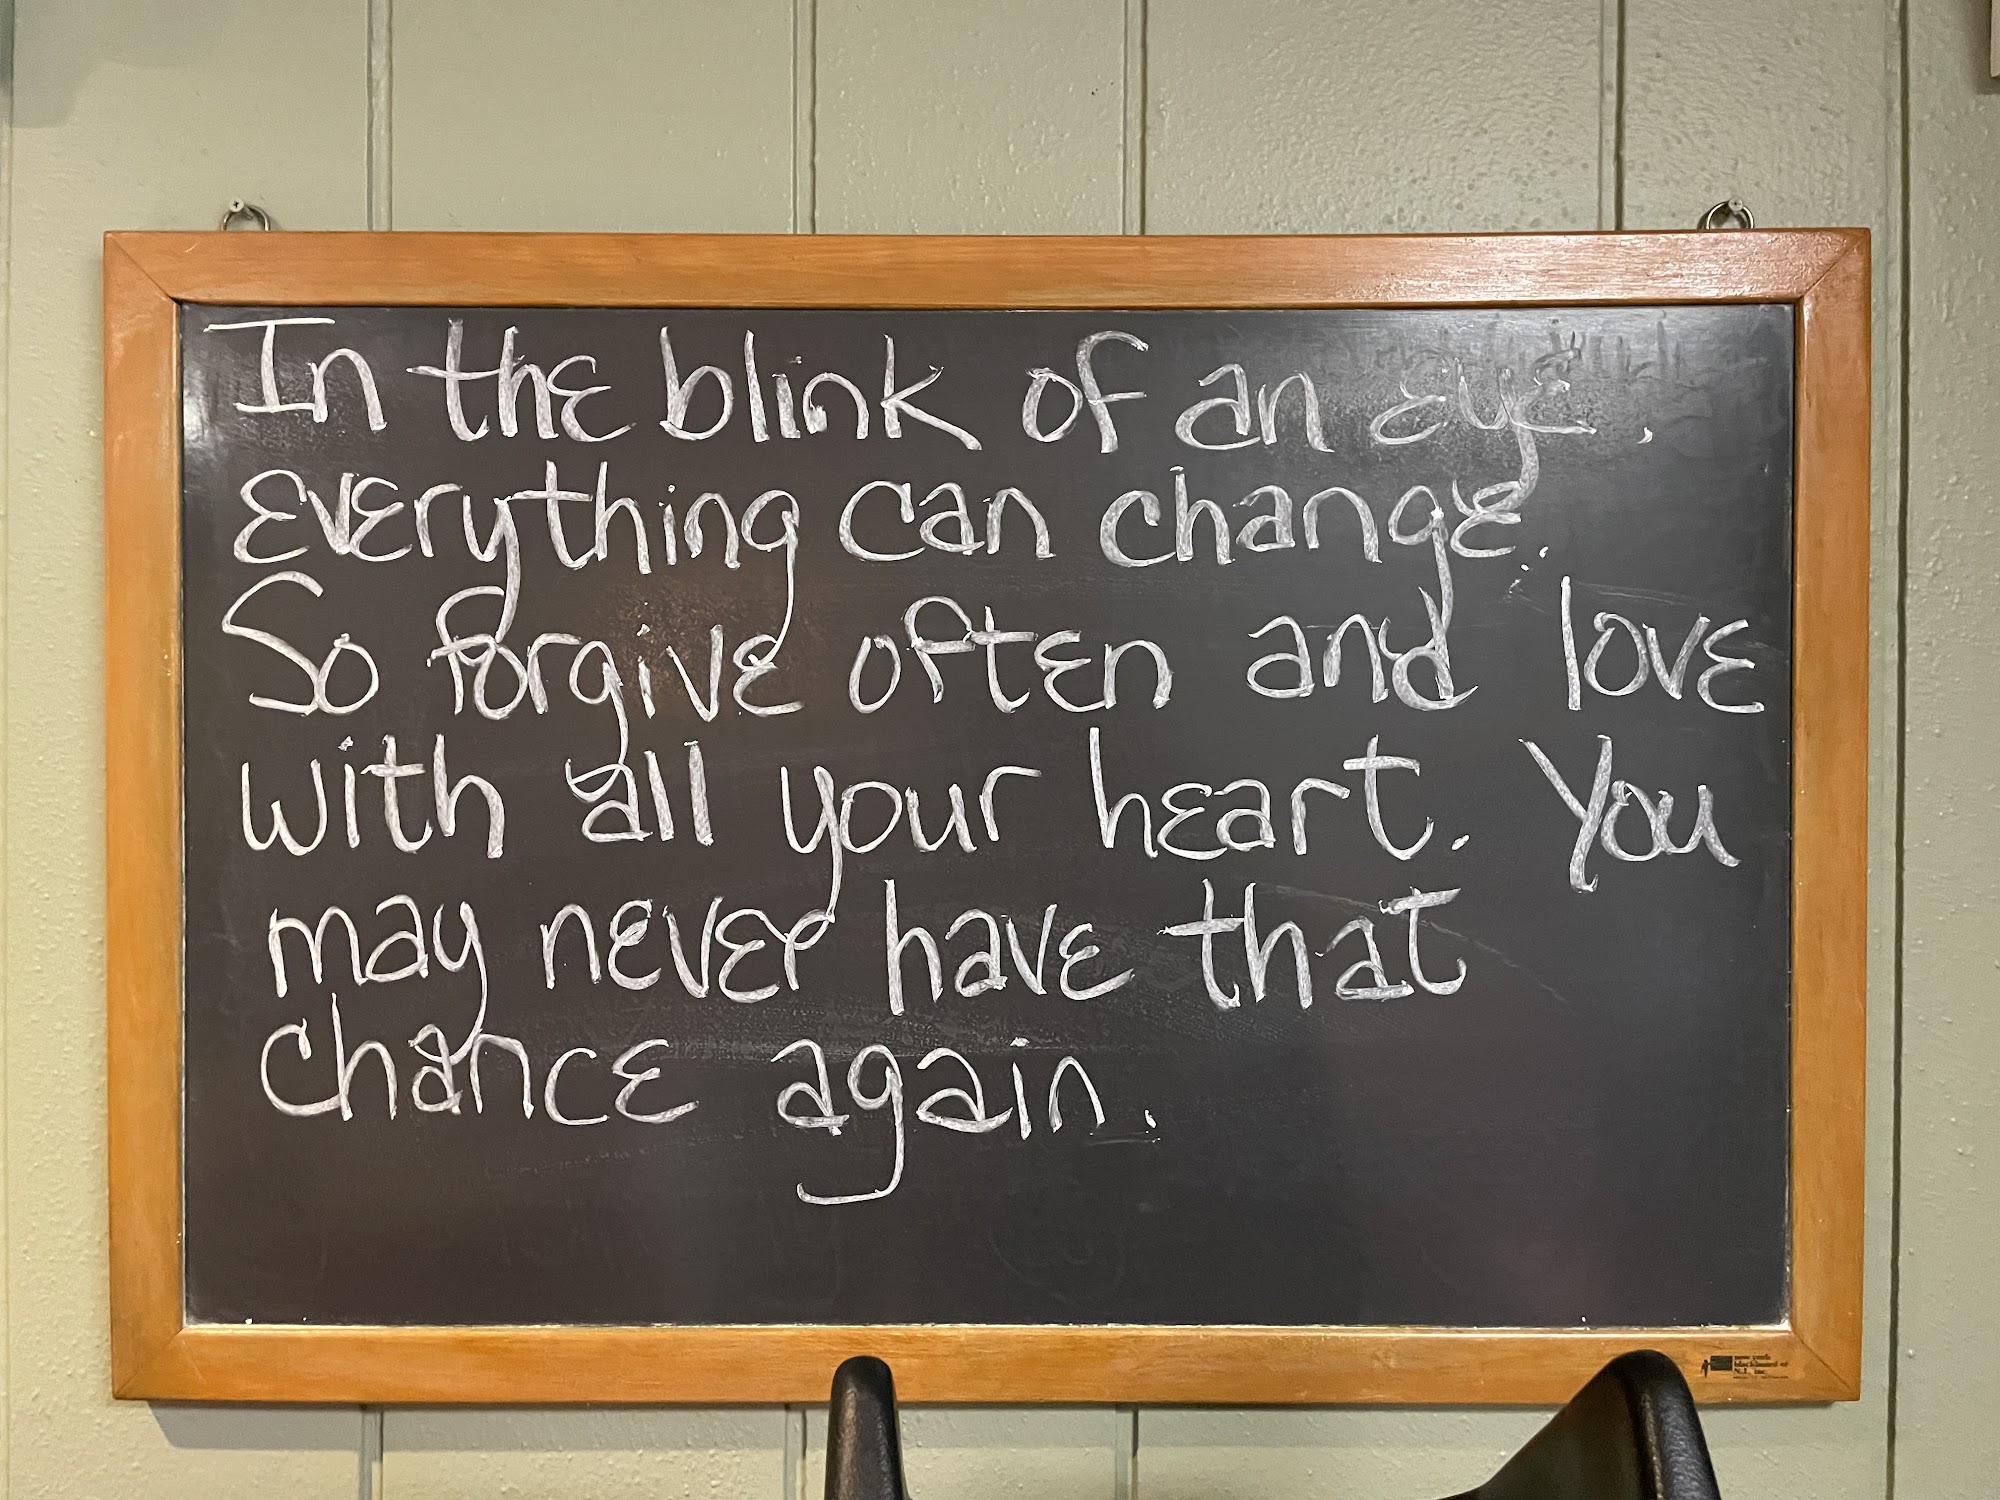 In the blink of an eye.
everything can change.
So forgive often and love
with all your heart. You
may never have that
chance again.
new york
blackboard of
N.J. inc